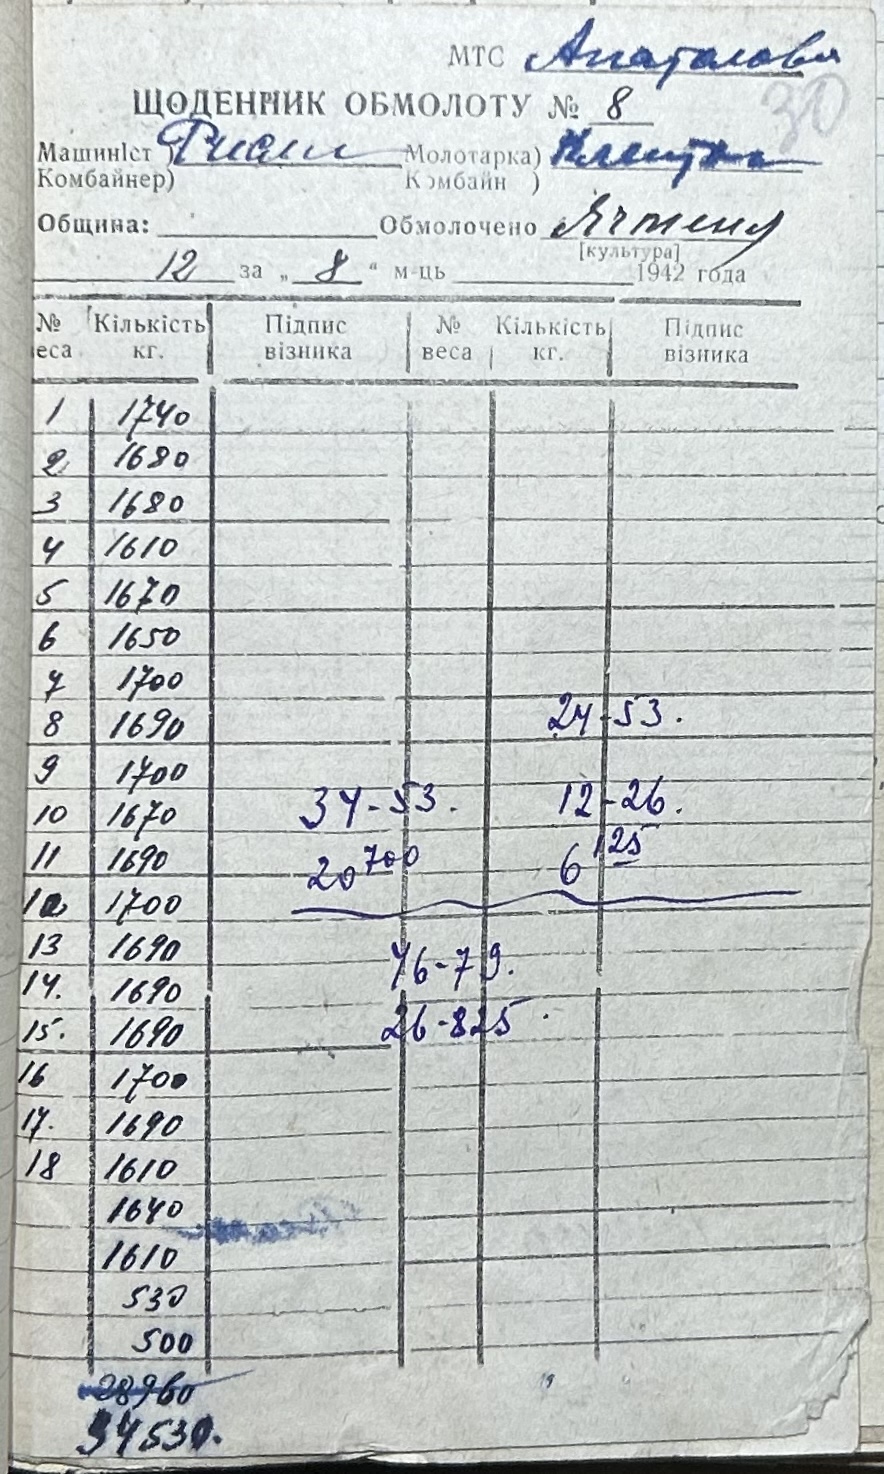 МТС Апаталова
30
ЩОДЕННИК ОБМОЛОТУ № 8
Машиніст ) Молотарка)
Комбайнер) Комбайн )
Община: Обмолочено Ячменя
[культура]
12 за „ 8 “ м-ць 1942 года
№ Кількість Підпис № Кількість Підпис
веса кг. візника веса кг. візника
1 1740
2 1680
3 1680
4 1610
5 1670
6 1650
7 1700
8 1690 24-53.
9 1700
10 1670 34-53. 12-26.
11 1690 20 700 6 125
12 1700
13 1690 46-79.
14. 1690
15. 1690 26-825
16 1700
17. 1690
18 1610
1640
1610
530
500
28960
34530.